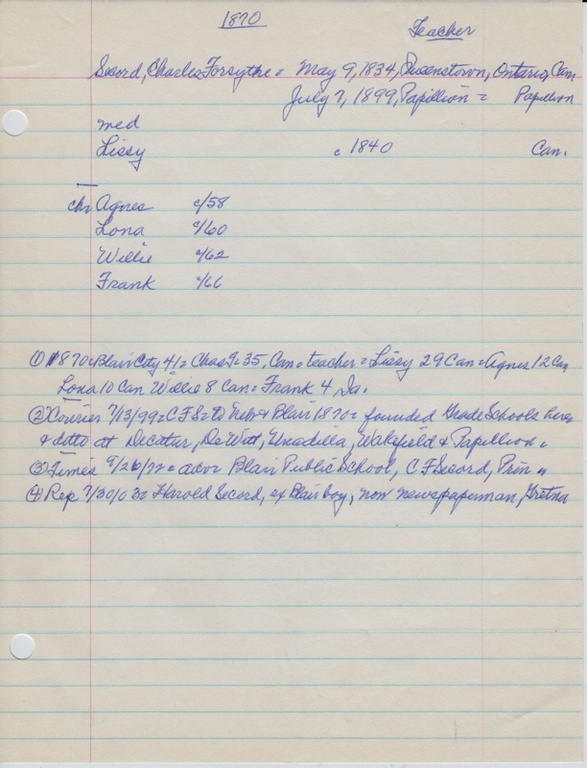 1870
Teacher
Secord, Charles Forsythe = May 9, 1834, Queenstown, Ontario, Can.
July 7, 1899, Papillion = Papillion
med
Lissy c 1840 Can.
ch, Agnes c/58
Lona c/60
Willie c/62
Frank c/66
① 1870 = Blair City 41 = Chas F = 35, Can = teacher = Lissy 29 Can = Agnes 12 Can
Lona 10 Can Willie 8 Can = Frank 4 Ia.
② Courier 7/13/99 = C F S = to Neb & Blair 1870 = founded Grade Schools here
& ditto at Decatur, DeWitt, Unadilla, Wakefield & Papillion =
③ Times 9/26/72 = adv = Blair Public School, C F Secord, Prin =
④ Rep 7/30/03 = Harold Secord, ex Blair boy, now newspaperman, Gretna